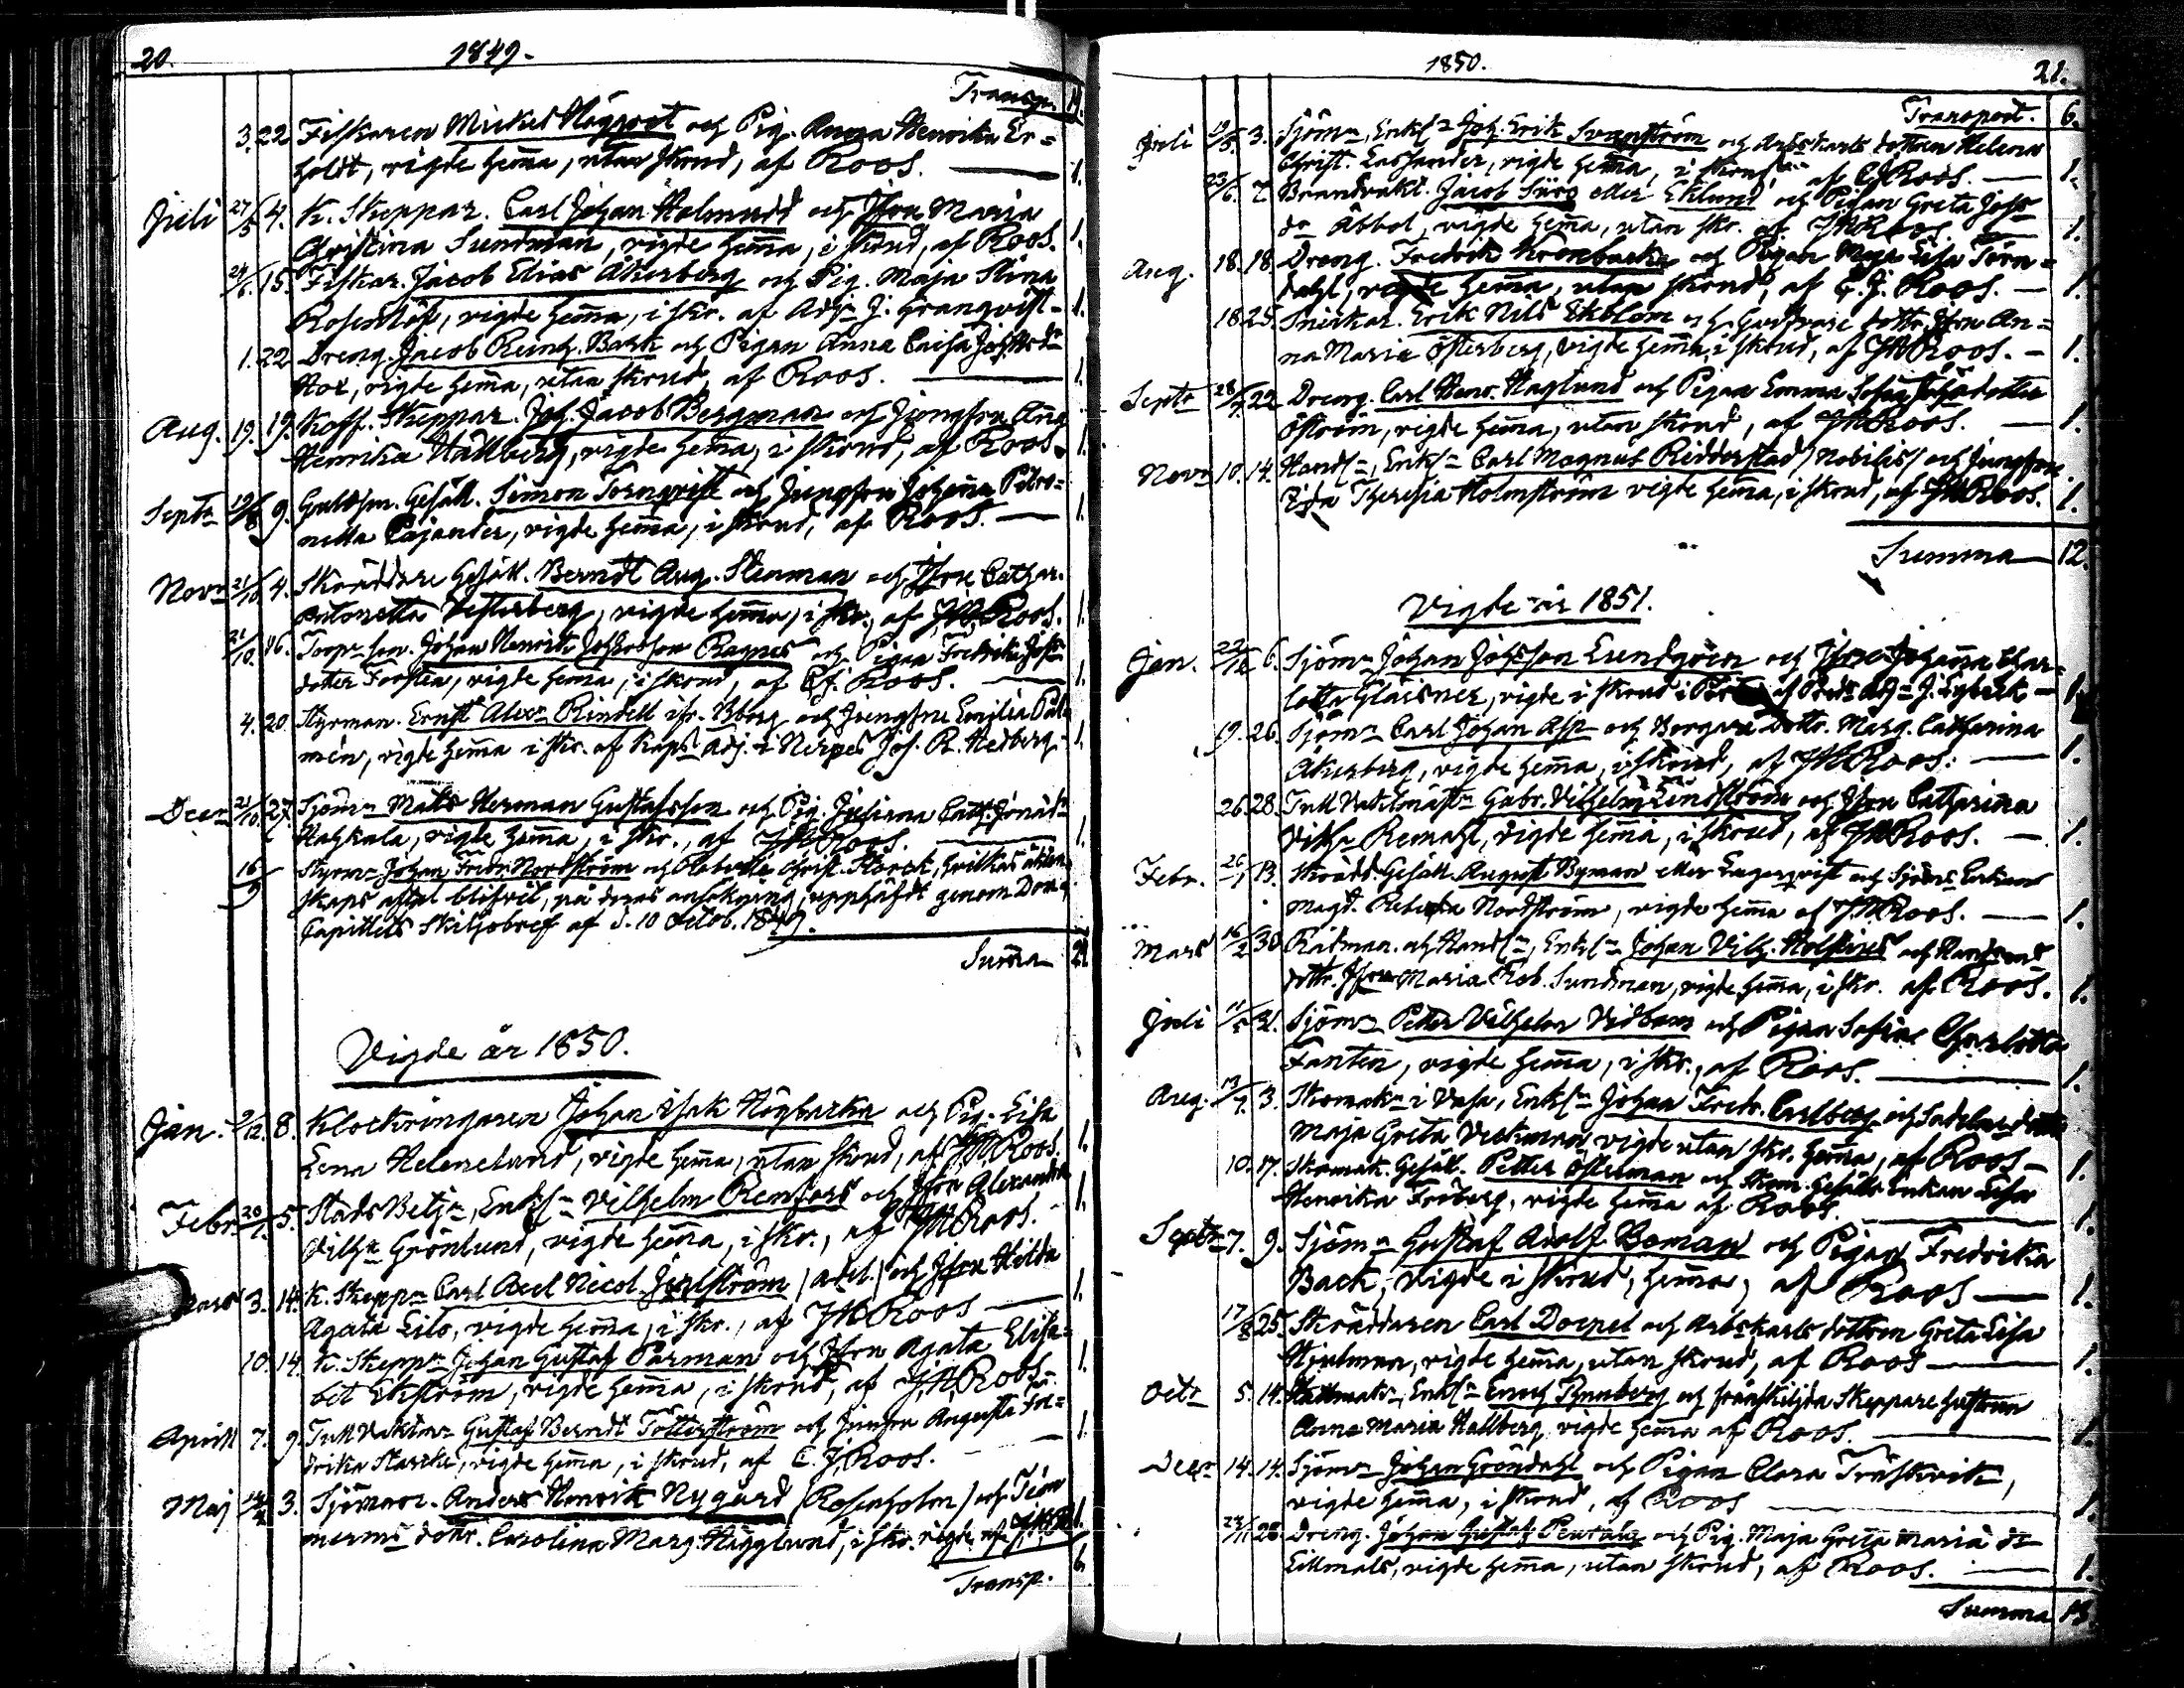 20. 1849.
Transp. 11.
3. 22 Fiskaren Mickel Högqvist och Pig. Anna Henrika Er=
holdt, vigde hemma, utan skrud, af Roos. 1.
Juli 27/5 4. K. Skeppar. Carl Johan Holmudd och Jfrn Maria
Christina Sundman, vigde hemma, i skrud, af Roos. 1.
24/6. 15. Fiskar. Jacob Elias Åkerberg och Pig. Maja Stina
Rosenlöf, vigde hemma, i skr. af Adj. J. Granqvist. 1.
1. 22 Dreng. Jacob Reinh. Back och Pigan Anna Caisa
vigde hemma, utan skrud, af Roos. 1.
Aug. 19. 19. Koff. Skeppar. Joh. Jacob Bergman och Jungfrn
Henrika Hällberg, vigde hemma, i skrud, af Roos. 1.
Septr 19/8 9. Guldsm. Gesäll. Simon Tornqvist och Jungfrn Johanna Petro=
netta Cajander, vigde hemma, i skrud, af Roos. 1.
Novr 21/10 4. Skräddare Gesäll. Berndt Aug. Stenman och Jfrn Cathar.
Antonetta Vesterberg, vigde hemma, i skr., af JHRoos. 1.
21/10. 16. Johan Henrik Ragnes och Pigan Fredrika
dotter Forsten, vigde hemma, i skrud, af CJ. Roos. 1.
4. 20 Styrman. Ernst Alexr Rindell och Jungfrn Emilia
mén, vigde hemma i skr. af Kaps adj. i Nerpes Jos. R. Hedberg. 1.
Decr 21/10 27. Sjömn Mats Herman Gustafsson och Pig. Juliana Cath.
vigde hemma, i skr., af JHRoos. 1.
16/9 Styrmn Johan Fredr. Nordström och Christ.
skaps aftal blifvit, på deras ansökning, upphäfdt genom Dom
Capittels Skiljobref af d. 10 Octob. 1849.
Summa 21
Vigde år 1850.
Jan. 8. Klockringaren Johan Isak Högbacka och Pig. Lisa
Lena Helenelund, vigde hemma, utan skrud, af JHRoos. 1.
Febr. 20/1. 5. Stads Betjn, Enkln Vilhelm Renfors och Jfrn Alexandra
Vilha Grönlund, vigde hemma, i skr., af JHRoos. 1.
Mars 3. 14. K. Skeppn Carl Axel Nicol. (adel.) och Jfrn Hilda
Agata Lilo, vigde hemma, i skr., af JHRoos 1.
10. 14. K. Skeppn Johan Gustaf Parman och Jfrn Agata Elisa=
bet Ekström, vigde hemma, i skrud, af J.HRoos. 1.
April 7. 9. Tull Vaktmn Gustaf Berndt Totterström och Jungfrn Augusta Fre=
drika Starcke, vigde hemma, i skrud, af C. J. Roos. 1.
Maj 3. Sjöman. Anders Henrik Nygård (Rosenholm) och Tim
merms dottr. Carolina Marg. Hägglund, i skr. vigde af 1.
Transp. 6
1850. 21.
Transport. 6.
Juli 19/5. 3. Sjömn, Enkln Joh. Erik Svanström och Arbetskarls dottren Helena
Christ. Cashander, vigde hemma, i skrud, af CJRoos. 1.
23/6. 7. Brandvakt. Jacob eller Eklund och Pigan Greta
dr Abbol, vigde hemma, utan skr. af JHRoos 1.
Aug. 18. 18. Dreng. Fredrik Kronbacka och Pigan Maja Lisa Törn=
dahl, vigde hemma, utan skrud, af C. J. Roos. 1.
18. 25. Snickar. Erik Nils Ekblom och dottr. Jfrn An=
na Maria Österberg, vigde hemma, i skrud, af JHRoos. 1.
Septr 28/7 22 Dreng. Carl Henr. Haglund och Pigan Emma Sofia dotter
Öström, vigde hemma, utan skrud, af JHRoos. 1.
Novr 10. 14. Handln, Enkln Carl Magnus Ridderstad (Nobilis) och Jungfrn
Ida Theresia Holmström vigde hemma, i skrud, af JHRoos. 1.
Summa 12.
Vigde år 1851.
Jan. 22/12 6. Sjömn Johan Johsson Lundgren och Jfrn Johanna Char=
lotta Glaisner, vigde i skrud i af J. Lybeck 1.
19. 26. Sjömn Carl Johan Asp och Borgare dottr. Marg. Catharina
Åkerberg, vigde hemma, i skrud, af JHRoos. 1.
26. 28. Tull Vaktmästn Gabr. Vilhelm Lindström och Jfrn Catharina
Vilha Remahl, vigde hemma, i skrud, af JHRoos. 1.
Febr. 26/1 13. Skrädd. Gesäll August Byman eller Lagerqvist och Sjömns Enkan
Magd. Rebecka Nordström, vigde hemma af JHRoos. 1.
Mars 16/2 30 Rådman. och Handln, Enkln Johan Vilh. och Handlands
dottr. Jfrn Maria Reb. Sundman, vigde hemma, i skr. af Roos. 1.
Juli 11/5 31. Sjömn Petter Vilhelm Vidbom och Pigan Sofia Charlotta
Fantén, vigde hemma, i skr., af Roos. 1.
Aug. 13/7. 3. Skomakn i Vasa, Enkln Johan Fredr. Carlberg och Sadelm dotter
Maja Greta Veckman vigde utan skr. hemma, af Roos 1.
10. 17. Skomak. Gesäll. Petter Österman och Skom. Gesälls Enkan Lisa
Henrika Froberg, vigde hemma af Roos. 1.
Septr 7. 9. Sjömn Gustaf Adolf Boman och Pigan Fredrika
Back, vigde i skrud, hemma, af Roos 1.
17/8 25. Skräddaren Carl Doepel och Arbskarls dottren Greta Lisa
Hjulman, vigde hemma, utan skrud, af Roos 1.
Octr 5. 19. Hattmakr, Enkln Enoch Rynnberg och frånskiljda Skeppare hustrun
Anna Maria Hallberg, vigde hemma af Roos. 1.
Decr 14. 14. Sjömn Johan Gröndahl och Pigan Clara Träskvik,
vigde hemma, i skrud, af Roos 1.
23/11. 28. Dreng. Johan Gustaf och Pig. Maja Greta Maria dr
Lillmats, vigde hemma, utan skrud, af Roos. 1.
Summa